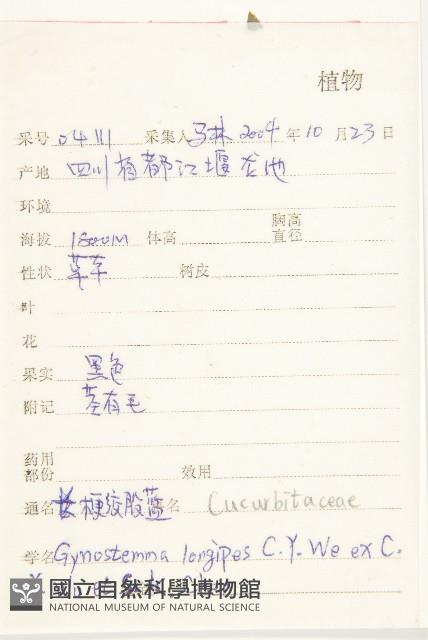 植物
采号 04111 采集人 马林 2004 年 10 月 23 日
产地 四川省都江堰龙池
环境
海拔 1800M 体高 胸高直径
性状 草本 树皮
叶
花
果实 黑色
附记 茎有毛
药用部份 效用
通名 长梗绞股蓝 名 Cucurbitaceae
学名 Gynostemma longipes C. Y. Wu ex C.
國立自然科學博物館
NATIONAL MUSEUM OF NATURAL SCIENCE